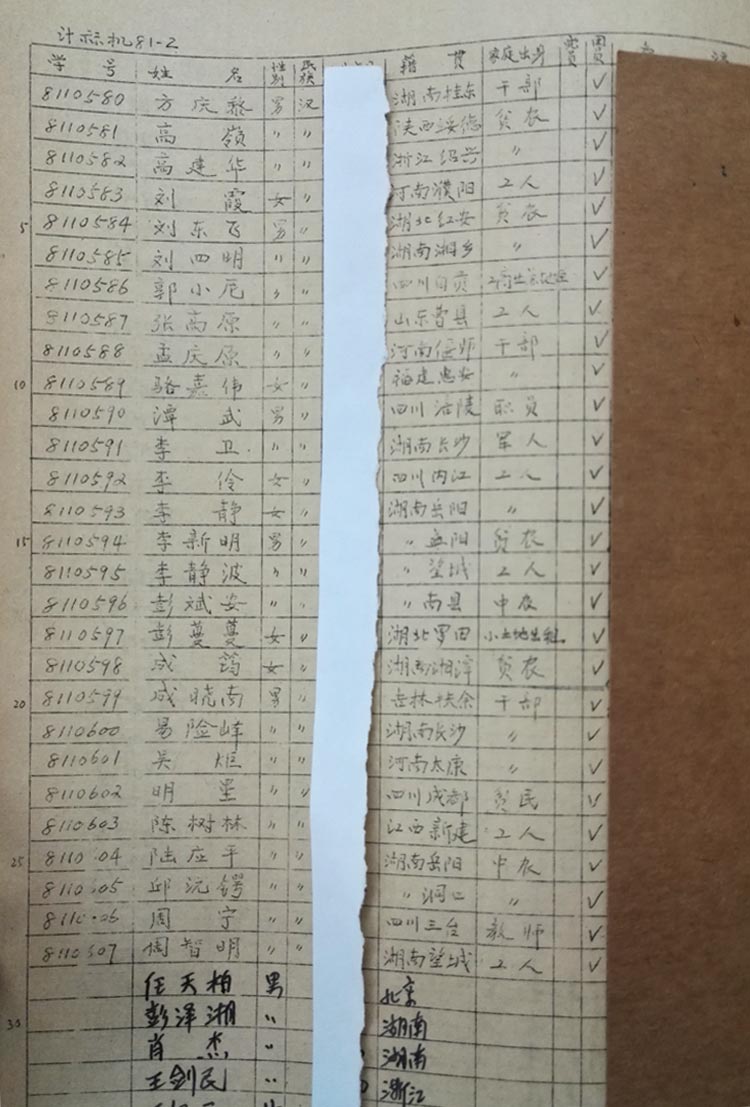 计标机81-2
学号 姓名 性别 民族 籍贯 家庭出身 党员 团员
8110580 方庆黎 男 汉 湖南桂东 干部 ✓
8110581 高嶺 〃 〃 陕西绥德 贫农 ✓
8110582 高建华 〃 〃 浙江绍兴 〃 ✓
8110583 刘霞 女 〃 河南濮阳 工人 ✓
5 8110584 刘东飞 男 〃 湖北红安 贫农 ✓
8110585 刘四明 〃 〃 湖南湘乡 〃 ✓
8110586 郭小尼 〃 〃 四川自贡 ✓
8110587 张高原 〃 〃 山东曹县 工人 ✓
8110588 孟庆原 〃 〃 河南偃师 干部 ✓
10 8110589 骆嘉伟 女 〃 福建惠安 〃 ✓
8110590 潭武 男 〃 四川涪陵 职员 ✓
8110591 李卫 〃 〃 湖南长沙 军人 ✓
8110592 李伶 女 〃 四川内江 工人 ✓
8110593 李静 女 〃 湖南岳阳 〃 ✓
15 8110594 李新明 男 〃 〃 岳阳 贫农 ✓
8110595 李静波 〃 〃 〃 望城 工人 ✓
8110596 彭斌安 〃 〃 〃 南县 中农 ✓
8110597 彭蔓蔓 女 〃 湖北罗田 小土地出租 ✓
8110598 成筠 女 〃 湖南湘潭 贫农 ✓
20 8110599 成晓南 男 〃 吉林扶余 干部 ✓
8110600 易险峰 〃 〃 湖南长沙 〃 ✓
8110601 吴炬 〃 〃 河南太康 〃 ✓
8110602 明星 〃 〃 四川成都 贫民 ✓
8110603 陈树林 〃 〃 江西新建 工人 ✓
25 8110 04 陆应平 〃 〃 湖南岳阳 中农 ✓
8110 05 邱沅锷 〃 〃 〃 洞口 〃 ✓
8110 06 周宁 〃 〃 四川三台 教师 ✓
8110607 周智明 〃 〃 湖南望城 工人 ✓
任天柏 男 北京
30 彭泽湘 〃 湖南
肖杰 〃 湖南
王剑民 〃 浙江